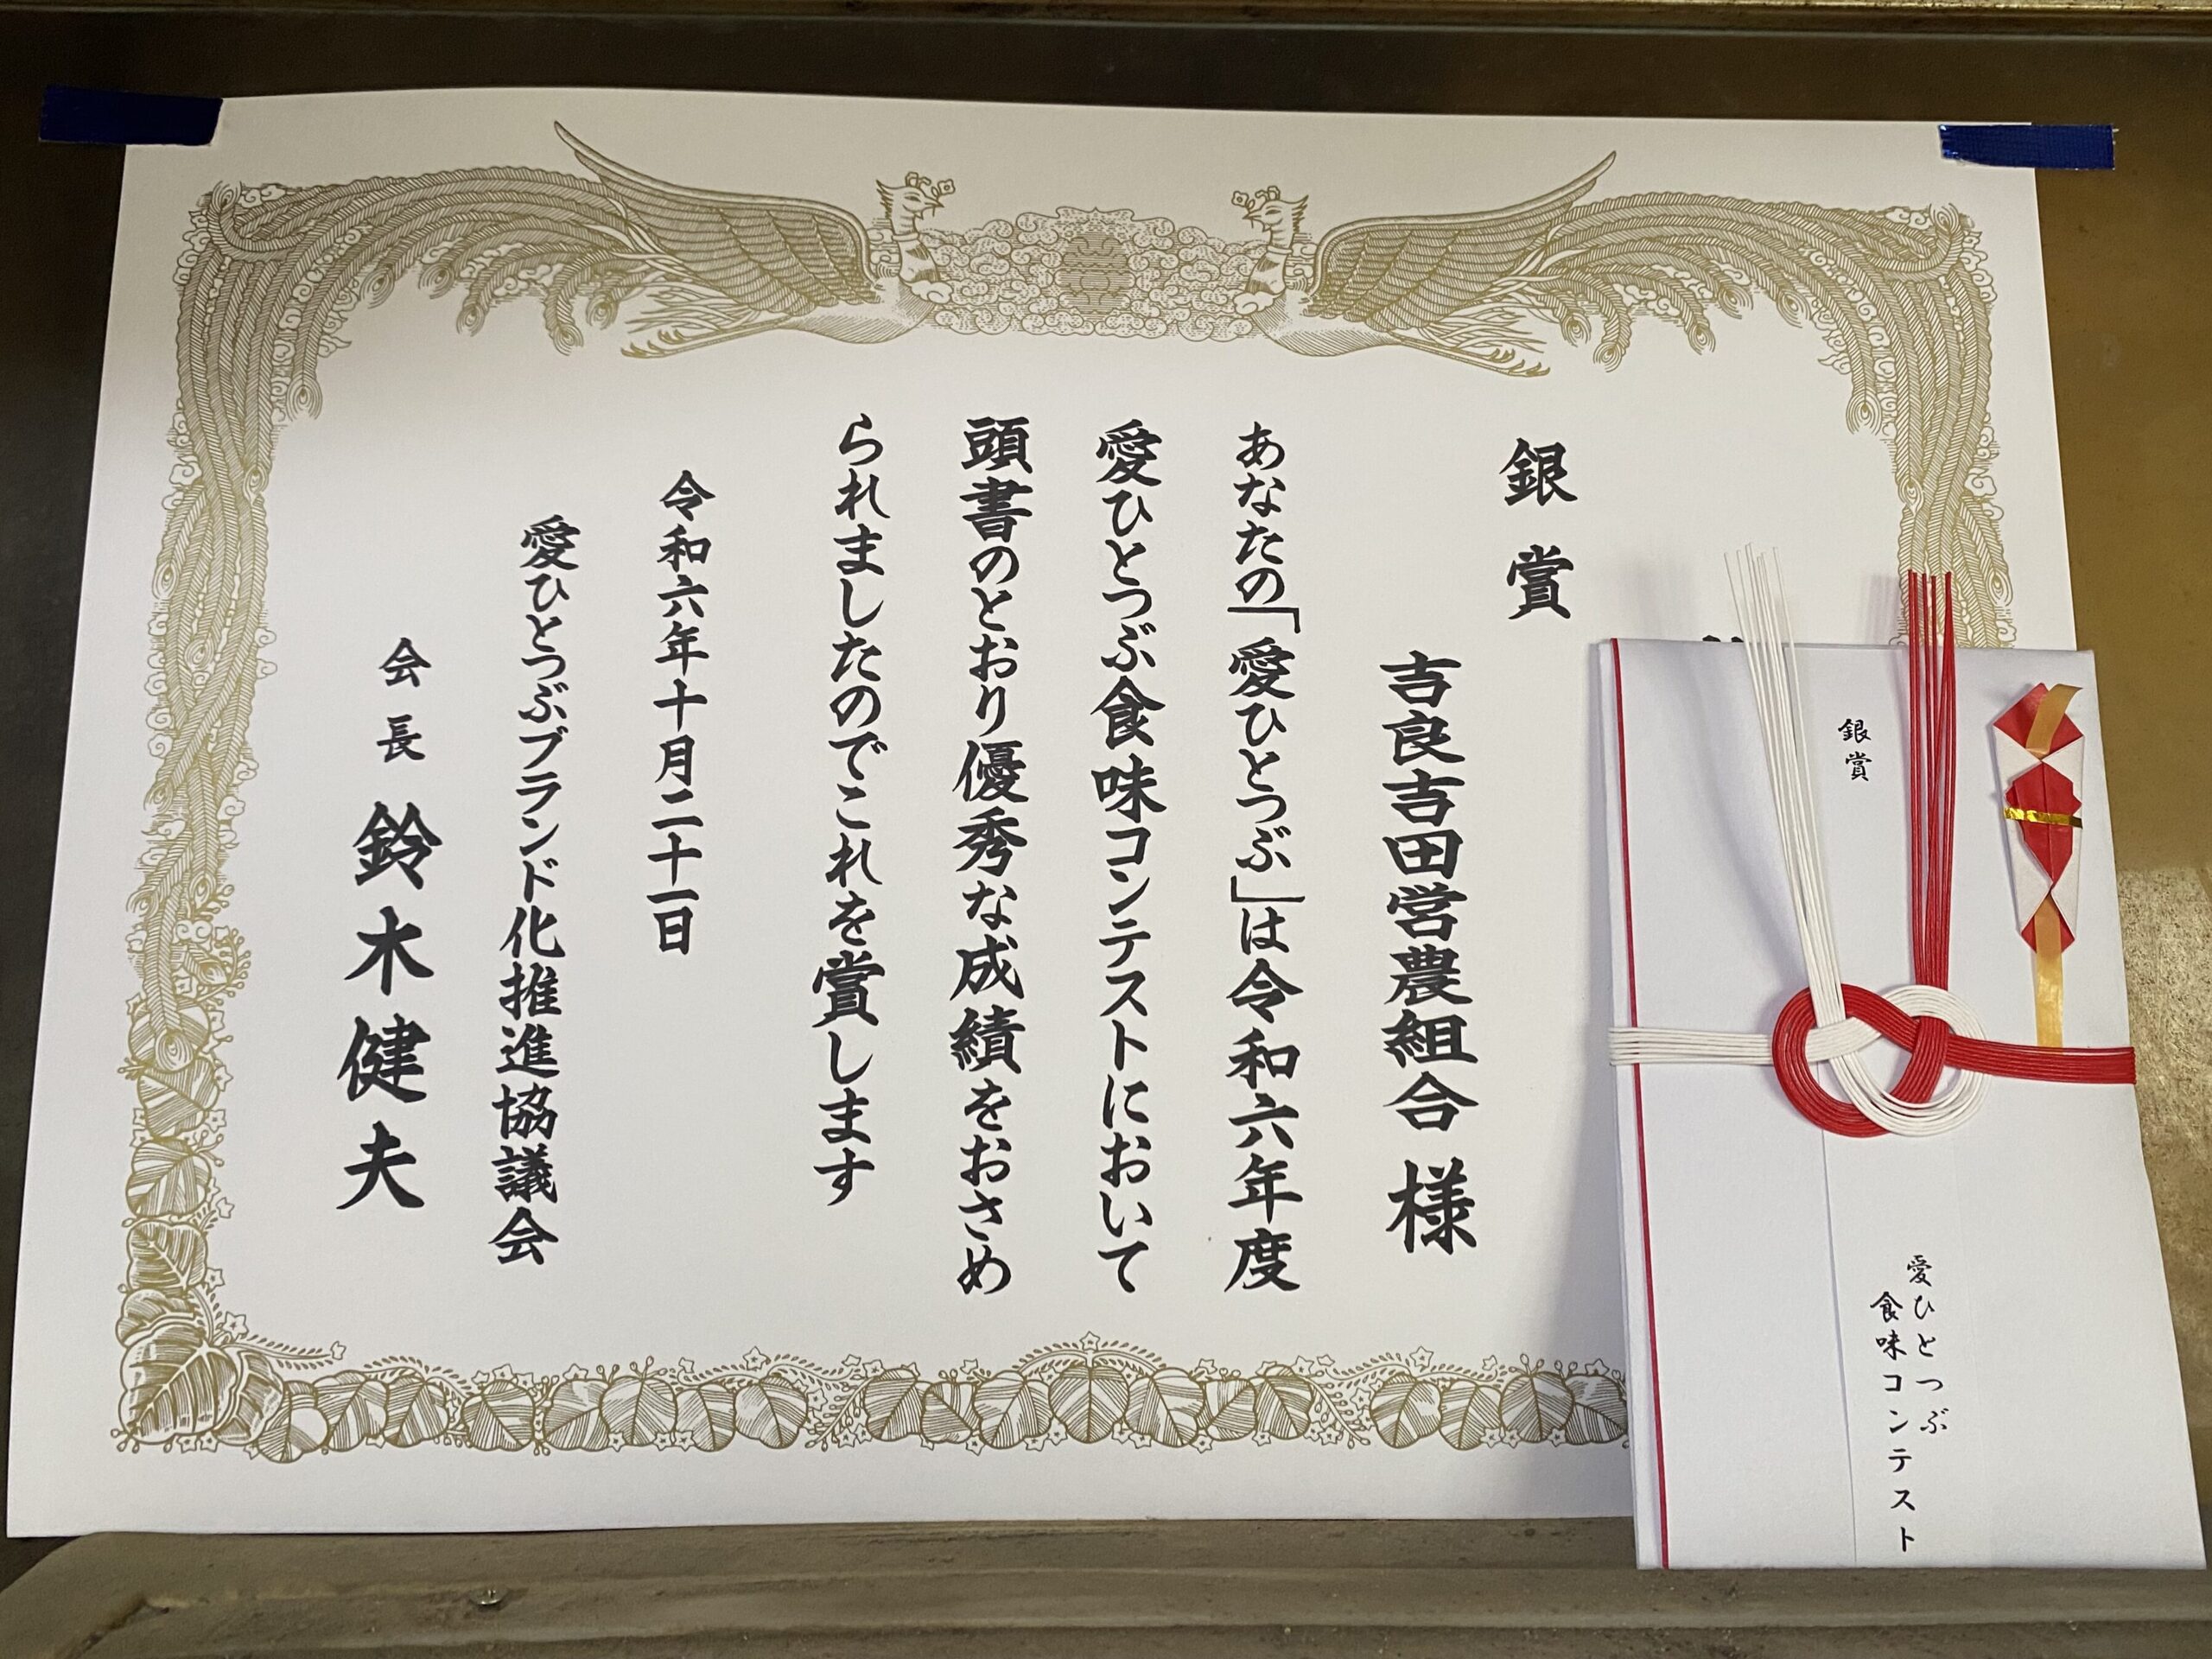 銀賞
吉良吉田営農組合 様
あなたの「愛ひとつぶ」は令和六年度
愛ひとつぶ食味コンテストにおいて
頭書のとおり優秀な成績をおさめ
られましたのでこれを賞します
令和六年十月二十一日
愛ひとつぶブランド化推進協議会
会長 鈴木健夫
銀賞
愛ひとつぶ
食味コンテスト